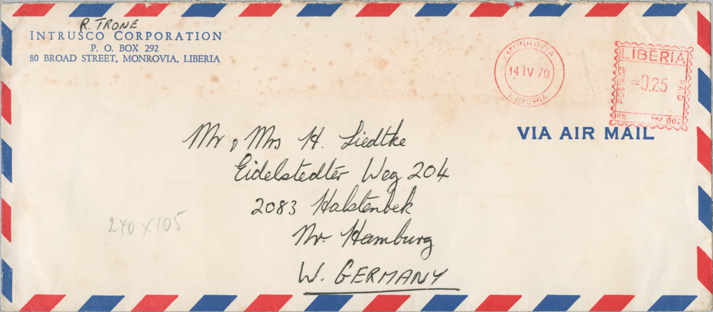 R. TRONE
INTRUSCO CORPORATION
P. O. BOX 292
80 BROAD STREET, MONROVIA, LIBERIA
MONROVIA
14 IV 70
LIBERIA
LIBERIA
POSTAGE
=0.25
VIA AIR MAIL
Mr, Mrs H. Liedtke
Eidelstedter Weg 204
2083 Halstenbek
Nr. Hamburg
W. GERMANY
240 x 105